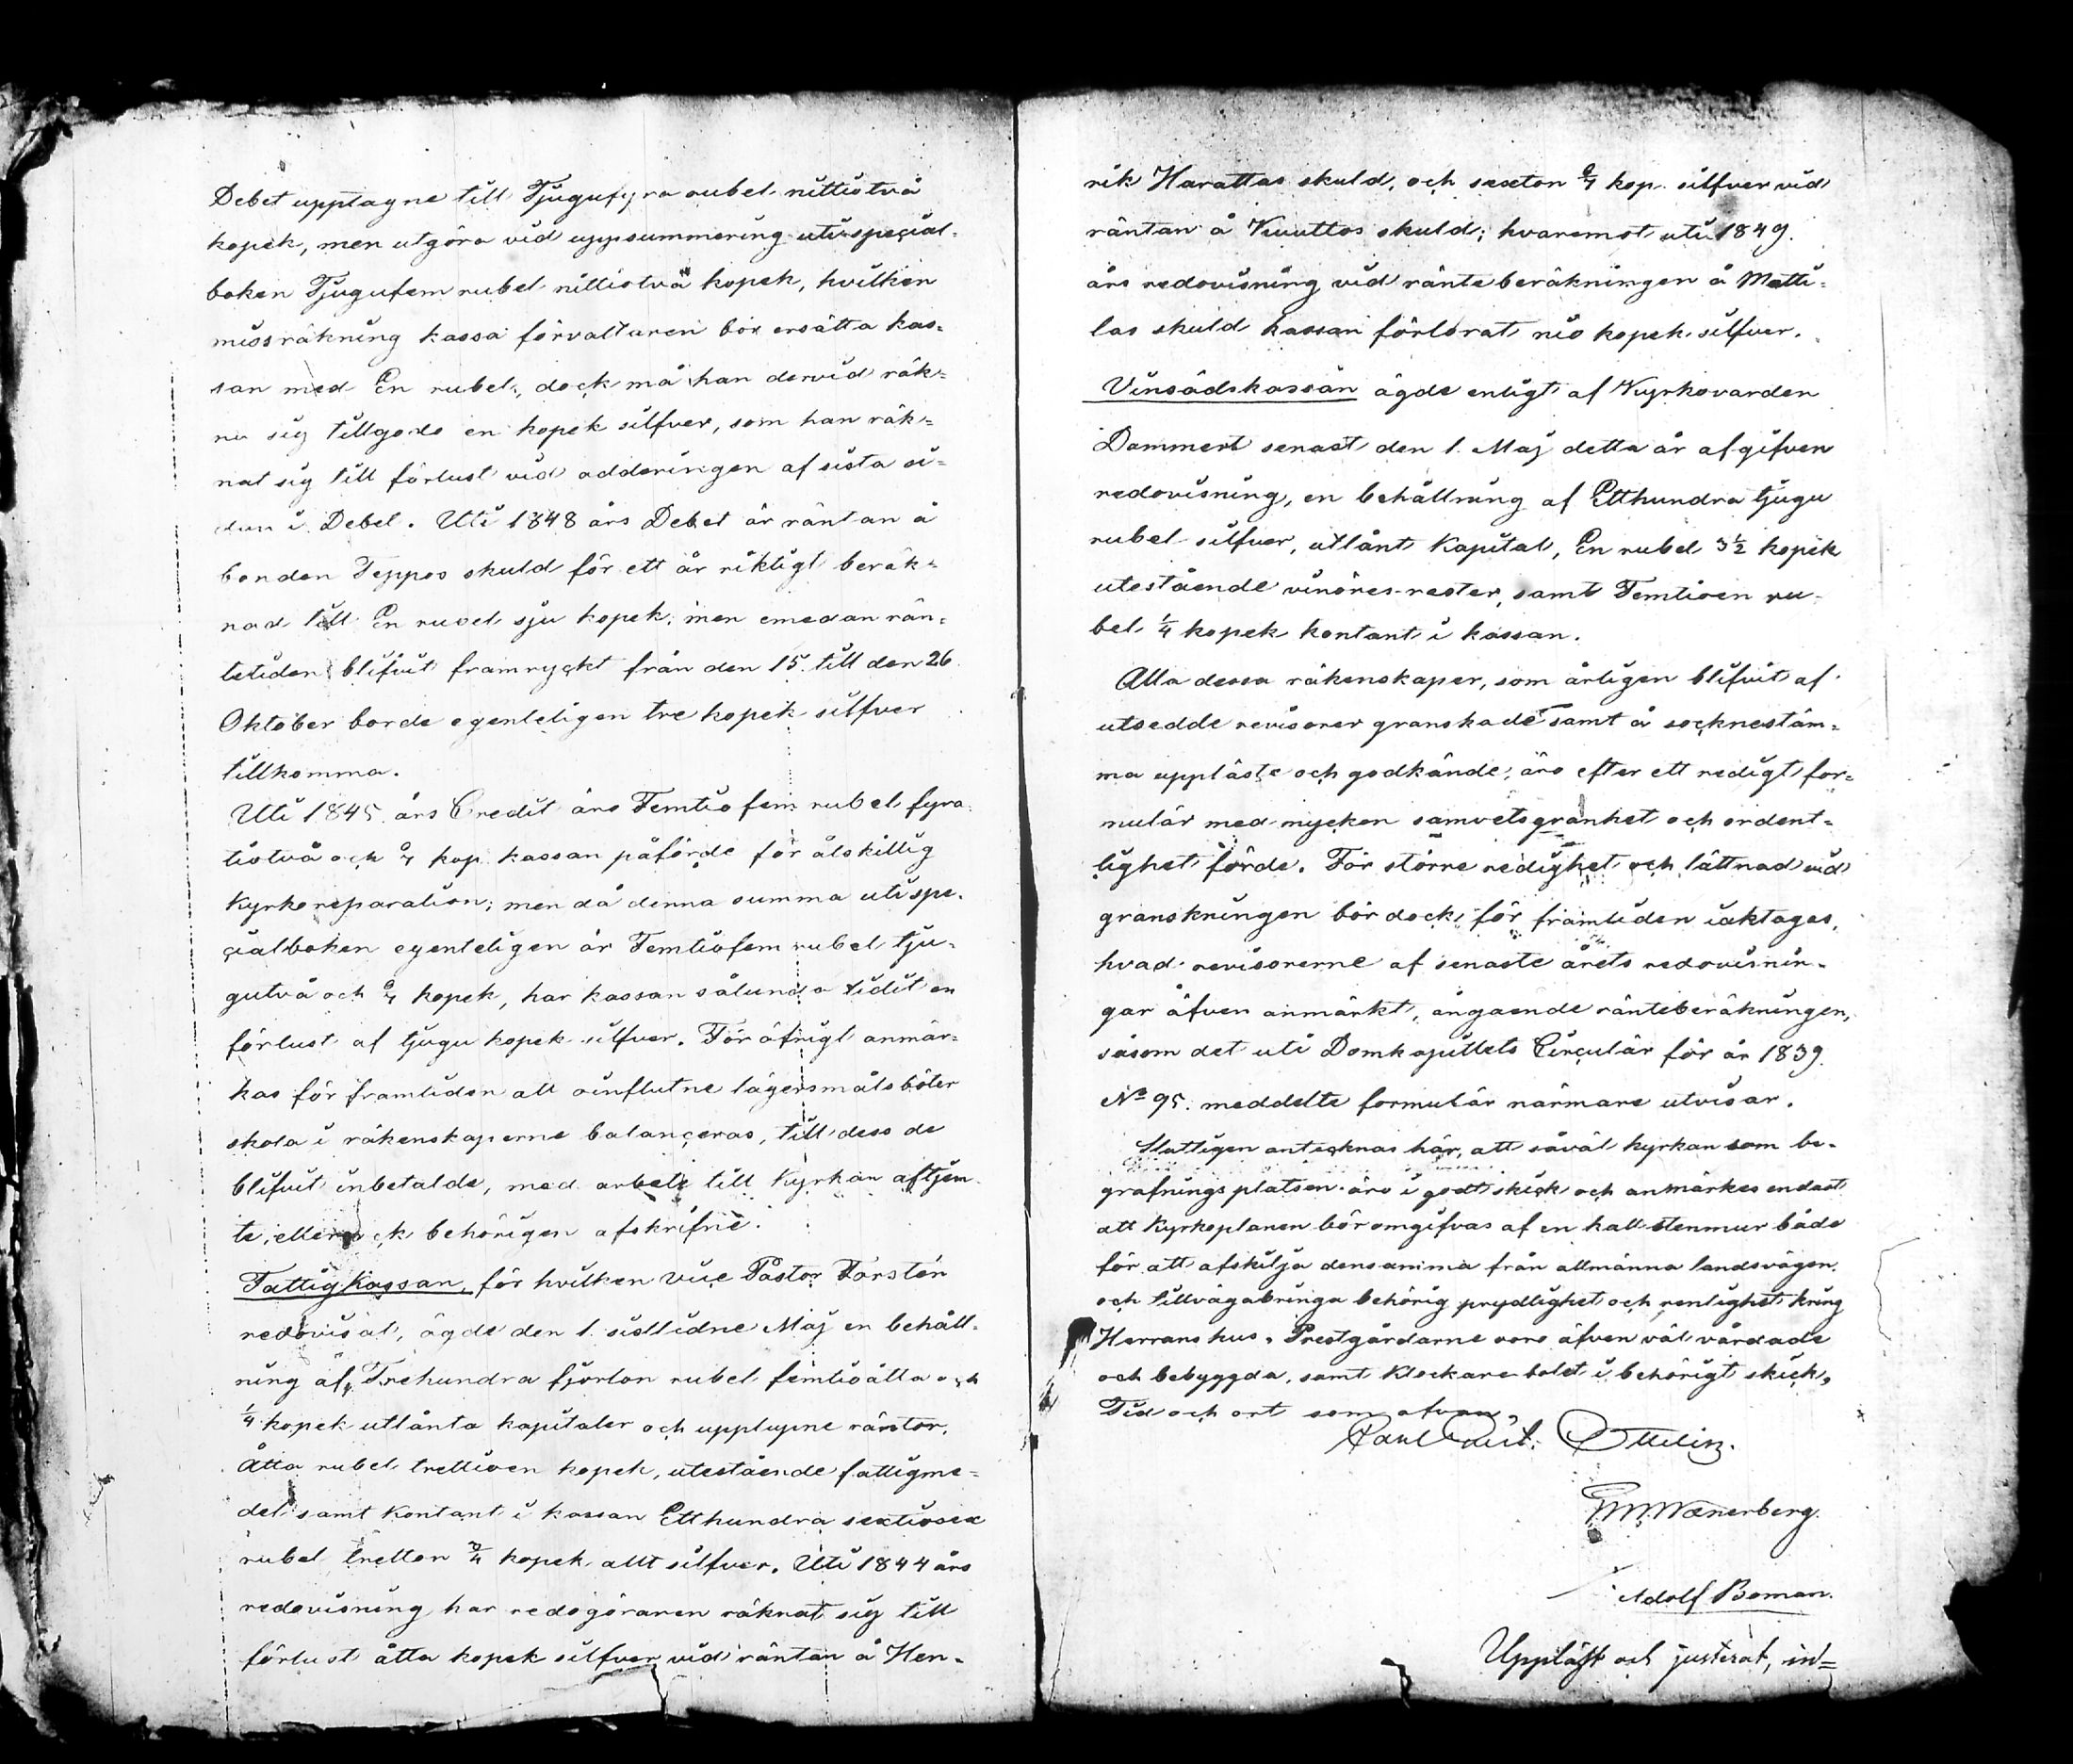 Debet upptagne till Tjugufyra rubel nittiotvå
kopek, men utgöra vid uppsummering uti special-
boken Tjugufem rubel nittiotvå kopek, hvilken
missräkning kassaförvaltaren bör ersätta kas-
san med En rubel, dock må han dervid räk-
na sig tillgodo en kopek silfver, som han räk-
nat sig till förlust vid adderingen af sista si-
dan i Debet. Uti 1848 års Debet är räntan å
bonden Teppos skuld för ett år riktigt beräk-
nad till En rubel sju kopek; men emedan rän-
tetiden blifvit framryckt från den 15. till den 26.
Oktober borde egenteligen tre kopek silfver
tillkomma.
Uti 1845 års Credit äro Femtiofem rubel fyra-
tiotvå och 2/4 kop. kassan påförde för åtskillig
Kyrkoreparation; men då denna summa uti spe-
cialboken egenteligen är Femtiofem rubel tju-
gutvå och 2/4 kopek, har kassan sålunda lidit en
förlust af tjugu kopek silfver. För öfrigt anmär-
kas för framtiden att oinflutne lägersmålsböter
skola i räkenskaperne balanceras, till dess de
blifvit inbetalde, med arbete till Kyrkan aftjen-
te, eller ock behörigen afskrifne.
Fattigkassan, för hvilken Vice Pastor Forstén
redovisat, ägde den 1. sistlidne Maj en behåll-
ning af Trehundra fjorton rubel femtioåtta och
1/4 kopek utlånta kapitaler och upplupne räntor,
Åtta rubel trettioen kopek, utestående fattigme-
del samt kontant i kassan Etthundra sextiosex
rubel tretton 3/4 kopek allt silfver. Uti 1844 års
redovisning har redogöraren räknat sig till
förlust åtta kopek silfver vid räntan å Hen-
rik Harattas skuld, och sexton 2/4 kop. silfver vid
räntan å Kuuttos skuld; hvaremot uti 1849.
års redovisning vid ränteberäkningen å Matti-
las skuld kassan förlorat nio kopek silfver.
Vinsädskassan ägde enligt af Kyrkovärden
Dammert senast den 1. Maj detta år afgifven
redovisning, en behållning af Etthundra tjugu
rubel silfver, utlånt Kapital, En rubel 3 1/2 kopek
utestående vinöres-rester, samt Femtioen ru-
bel 1/4 kopek kontant i kassan.
Alla dessa räkenskaper, som årligen blifvit af
utsedde revisorer granskade samt å socknestäm-
ma uppläste och godkände, äro efter ett redigt for-
mulär med mycken samvetsgranhet och ordent-
lighet förde. För större redighet och lättnad vid
granskningen bör dock för framtiden iakttagas,
hvad revisorerne af senaste årets redovisnin-
gar äfven anmärkt, angående ränteberäkningen,
såsom det uti Domkapitlets Circulär för år 1839.
No 95. meddelte formulär närmare utvisar.
Slutligen antecknas här, att såväl kyrkan som be-
grafningsplatsen äro i godt skick och anmärkes endast
att Kyrkoplanen bör omgifvas af en kall stenmur både
för att afskilja densamma från allmänna landsvägen
och tillvägabringa behörig prydlighet och renlighet kring
Herrans hus. Prestgårdarne voro äfven väl vårdade
och bebyggda, samt Klockarebolet i behörigt skick.
Tid och ort som ofvan.
Carl Ottelin.
Wænerberg.
Adolf Boman.
Uppläst och justerat, in=